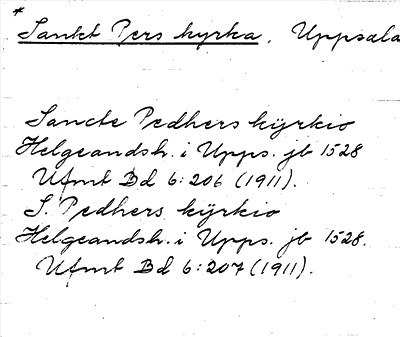 *
Sankt Pers kyrka, Uppsala
Sancte Pedhers kÿrkio
Helgeandsh. i Upps. jb 1528
Ufmt Bd 6:206 (1911).
S. Pedhers kÿrkio
Helgeandsh. i Upps. jb 1528.
Ufmt Bd 6:207 (1911).